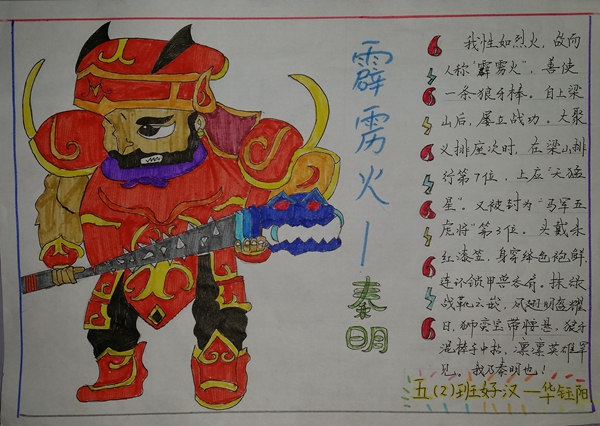 霹雳火—
秦明
我性如烈火，故而
人称“霹雳火”，善使
一条狼牙棒。自上梁
山后，屡立战功。大聚
义排座次时，在梁山排
行第7位，上应“天猛
星”。又被封为“马军五
虎将”第3位。头戴朱
红漆笠，身穿绛色袍鲜，
连环锁甲兽吞奇。抹绿
战靴云嵌，凤翅明盔耀
日，狮蛮宝带腰悬，狼牙
混棒手中拈，凛凛英雄罕
见。我乃秦明也！
五(2)班好汉—华钰阳